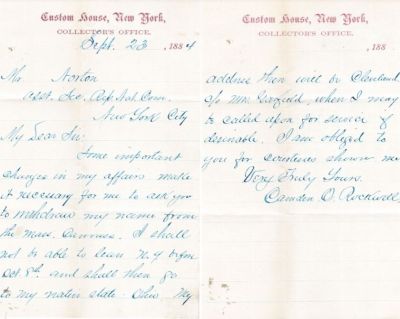 Custom House, New York,
COLLECTOR'S OFFICE.
Sept. 23, 1884
Mr Norton
asst. Sec. Rep. Nat. Com.
New York City
My Dear Sir:
Some important
changes in my affairs make
it necessary for me to ask you
to withdraw my name from
the Mass. Canvass. I shall
not be able to leave N.Y. before
Oct 8th and shall then go
to my native state - Ohio. My
Custom House, New York,
COLLECTOR'S OFFICE.
, 188
address then will be Cleveland
c/o Mrs. Garfield, when I may
be called upon for service if
desirable. I am obliged to
you for courtesies shown me.
Very Truly Yours.
Camden O. Rockwell